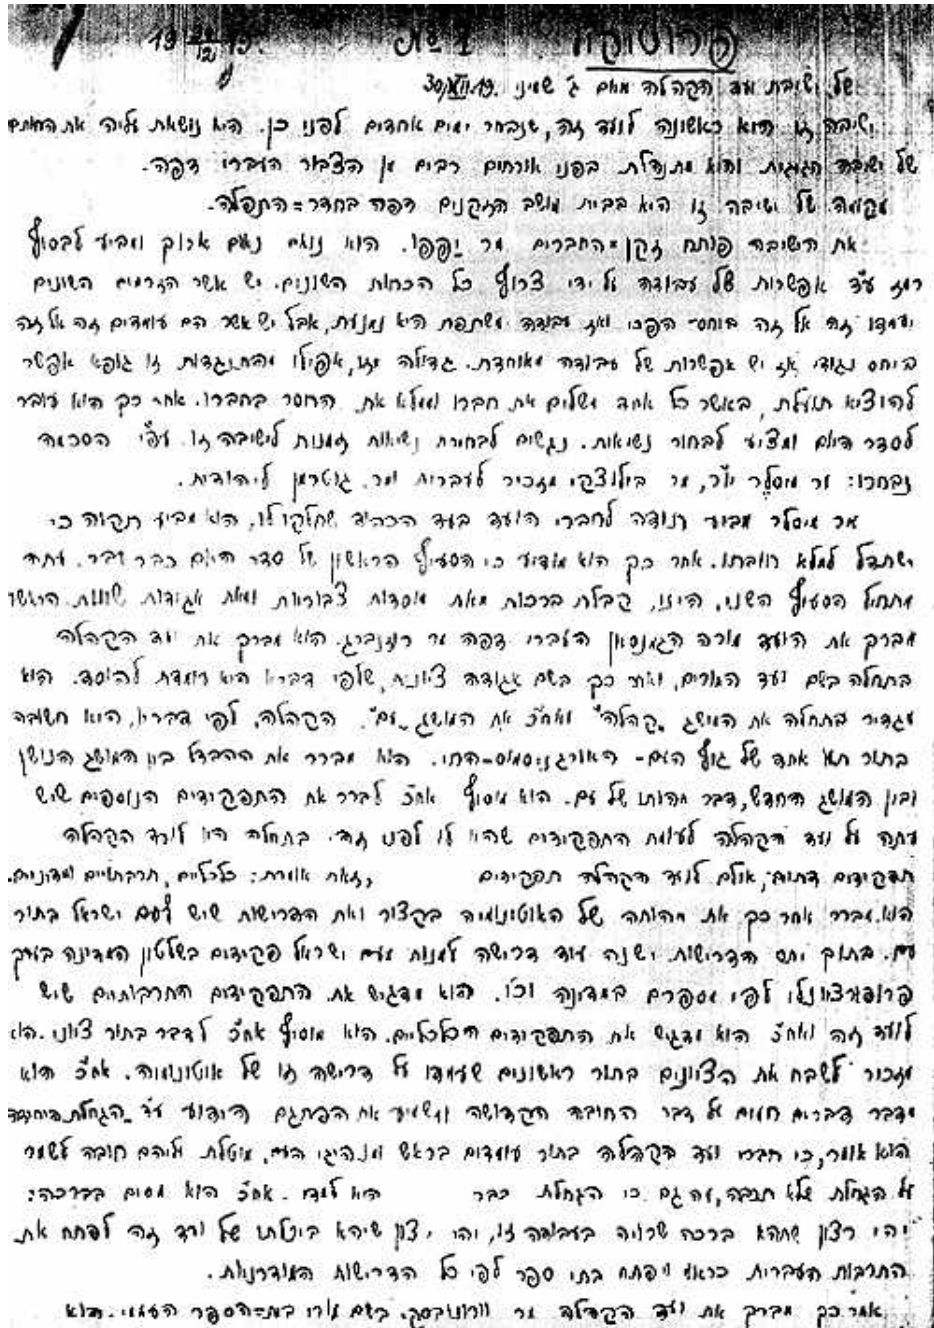 פרוטוקול № 1 19 29/12 19.
של ישיבת ועד הקהלה מיום ג' שמיני 30/XII.19.
ישיבה זו היא ראשונה לועד זה, שנבחר ימים אחדים לפני כן. היא נושאת עליה את החותם
של ישיבה חגיגית והיא מתנהלת בפני אורחים רבים מן הצבור העברי דפה.
מקומה של ישיבה זו היא בבית מושב הזקנים דפה בחדר=התפלה.
את הישיבה פותח זקן=החברים מר יפפו. הוא נואם נאום ארוך ומביע לבסוף
רמז ע"ד אפשרות של עבודה על ידי צרוף כל הכחות השונים. יש אשר הזרמים השונים
יעמדו זה אל זה ביחס הפכי ואז עבודה משתפת היא נמנעת, אבל יש אשר הם עומדים זה אל זה
ביחס נגודי אז יש אפשרות של עבודה מאוחדת. גדולה מזו, אפילו מהתנגדות זו גופא אפשר
להוציא תועלת, באשר כל אחד משלים את חברו וממלא את החסר בחברו. אחר כך הוא עובר
לסדר היום ומציע לבחור נשיאות. נגשים לבחירת נשיאות זמנית לישיבה זו. עפ"י הסכמה
נבחרו: מר מיסלר יו"ר, מר בילוצקי מזכיר לעברית ומר גוטרמן ליהודית.
מר מיסלר מביע תודה לחברי הועד בעד הכבוד שחלקו לו, הוא מביע תקוה כי
ישתדל למלא חובתו. אחר כך הוא מודיע כי הסעיף הראשון של סדר היום כבר עבר. עתה
מתחיל הסעיף השני, היינו, קבלת ברכות מאת מוסדות צבוריות ומאת אגודות שונות. הראשון
מברך את הועד מורה הגמנסיון העברי דפה מר רוזנברג. הוא מברך את ועד הקהלה
בתחלה בשם ועד המורים, ואחר כך בשם אגודה ציונית, שלפי דבריו היא עומדת להוסד. הוא
מגדיר בתחלה את המושג „קהלה" ואח"כ את המושג „עם". הקהלה, לפי דבריו, היא חשובה
בתור תא אחד של גוף העם - האורגניסמוס-החי. הוא מברר את ההבדל בין המושג הנושן
ובין המושג החדש, דבר מהותו של עם. הוא מוסיף אח"כ לברר את התפקידים הנוספים שיש
עתה על ועד הקהלה לעומת התפקידים שהיו לו לפני זה. בתחלה היו לועד הקהלה
תפקידים דתיים, אולם לועד הקהלה תפקידים , זאת אומרת: כלכליים, תרבותיים ומדיניים.
הוא מברר אחר כך את מהותה של האוטונומיה בקצור ואת הדרישות שיש לעם ישראל בתור
עם. בתוך יתר הדרישות ישנה עוד דרישה למנות מעם ישראל פקידים בשלטון המדינה בערך
פרופורצונלי לפי מספרם במדינה וכו'. הוא מדגיש את התפקידים התרבותיים שיש
לועד זה ואח"כ הוא מדגיש את התפקידים הכלכליים. הוא מוסיף אח"כ לדבר בתור ציוני. הוא
מזכיר לשבח את הציונים בתור ראשונים שעמדו על דרישה זו של אוטונומיה. אח"כ הוא
מדבר דברים חמים על דבר החובה הקדושה ומשמיע את הפתגם הידוע ע"ד „הגחלת היחידה
הוא אומר, כי חברי ועד הקהלה בתור עומדים בראש ומנהיגי העם, מוטלת עליהם חובה לשמר
על הגחלת שלא תכבה, מה גם כי הגחלת כבר היא אח"כ הוא מסים בברכה:
"יהי רצון שתהא ברכה שרויה בעבודה זו, ויהי רצון שיהא ביכלתו של ועד זה לפתח את
התרבות העברית כראוי ויפתח בתי ספר לפי כל הדרישות המודרניות.
אחר כך מברך את ועד הקהלה מר וורונובסקי בשם מורי בית=הספר העממי. הוא